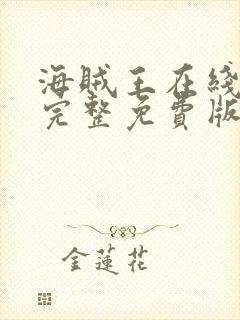 海贼王在綫
完整免費版
金蓮花